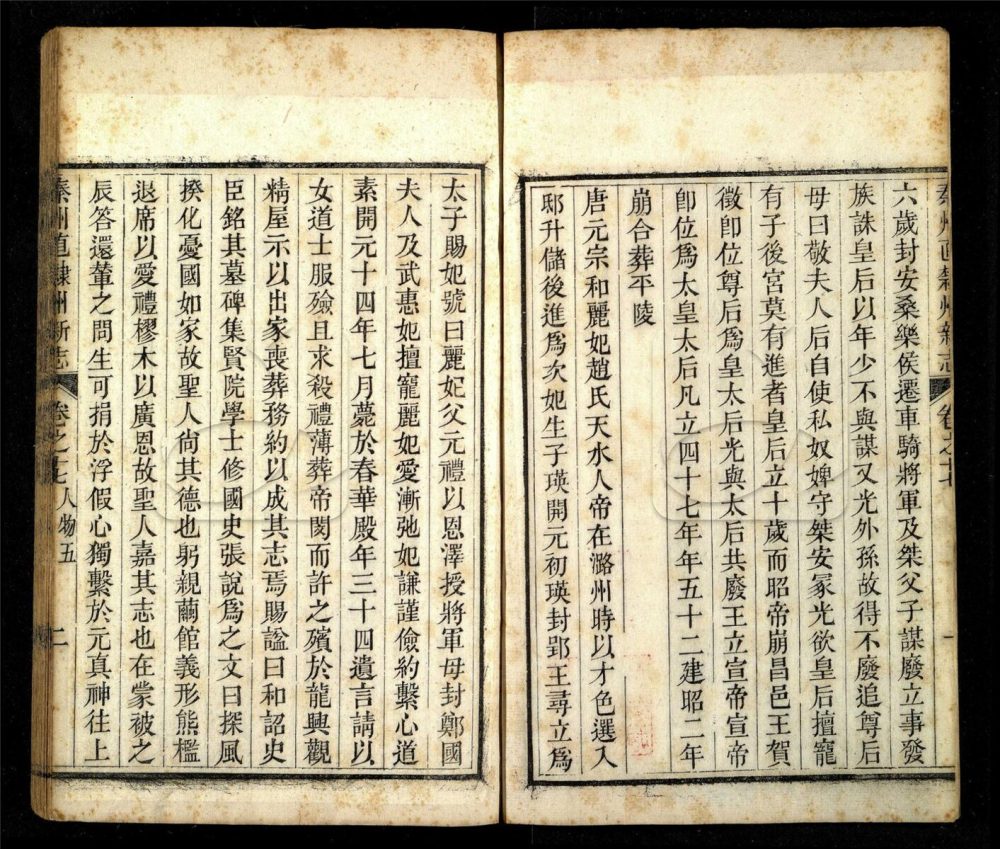 秦州直隸州新志
卷之十七
一
六歲封安桑樂侯遷車騎將軍及桀父子謀廢立事發
族誅皇后以年少不與謀又光外孫故得不廢追尊后
母曰敬夫人后自使私奴婢守桀安冢光欲皇后擅寵
有子後宮莫有進者皇后立十歲而昭帝崩昌邑王賀
徵卽位尊后爲皇太后光與太后共廢王立宣帝宣帝
卽位爲太皇太后凡立四十七年年五十二建昭二年
崩合葬平陵
唐元宗和麗妃趙氏天水人帝在潞州時以才色選入
邸升儲後進爲次妃生子瑛開元初瑛封郢王尋立爲
太子賜妃號曰麗妃父元禮以恩澤授將軍母封鄭國
夫人及武惠妃擅寵麗妃愛漸弛妃謙謹儉約繫心道
素開元十四年七月薨於春華殿年三十四遺言請以
女道士服殮且求殺禮薄葬帝閔而許之殯於龍興觀
精屋示以出家喪葬務約以成其志焉賜諡曰和詔史
臣銘其墓碑集賢院學士修國史張說爲之文曰探風
揆化憂國如家故聖人尙其德也躬親繭館義形熊檻
退席以愛禮樛木以廣恩故聖人嘉其志也在蒙被之
辰答還輦之問生可捐於浮假心獨繫於元真神往上
秦州直隸州新志
卷之十七 人物五
二